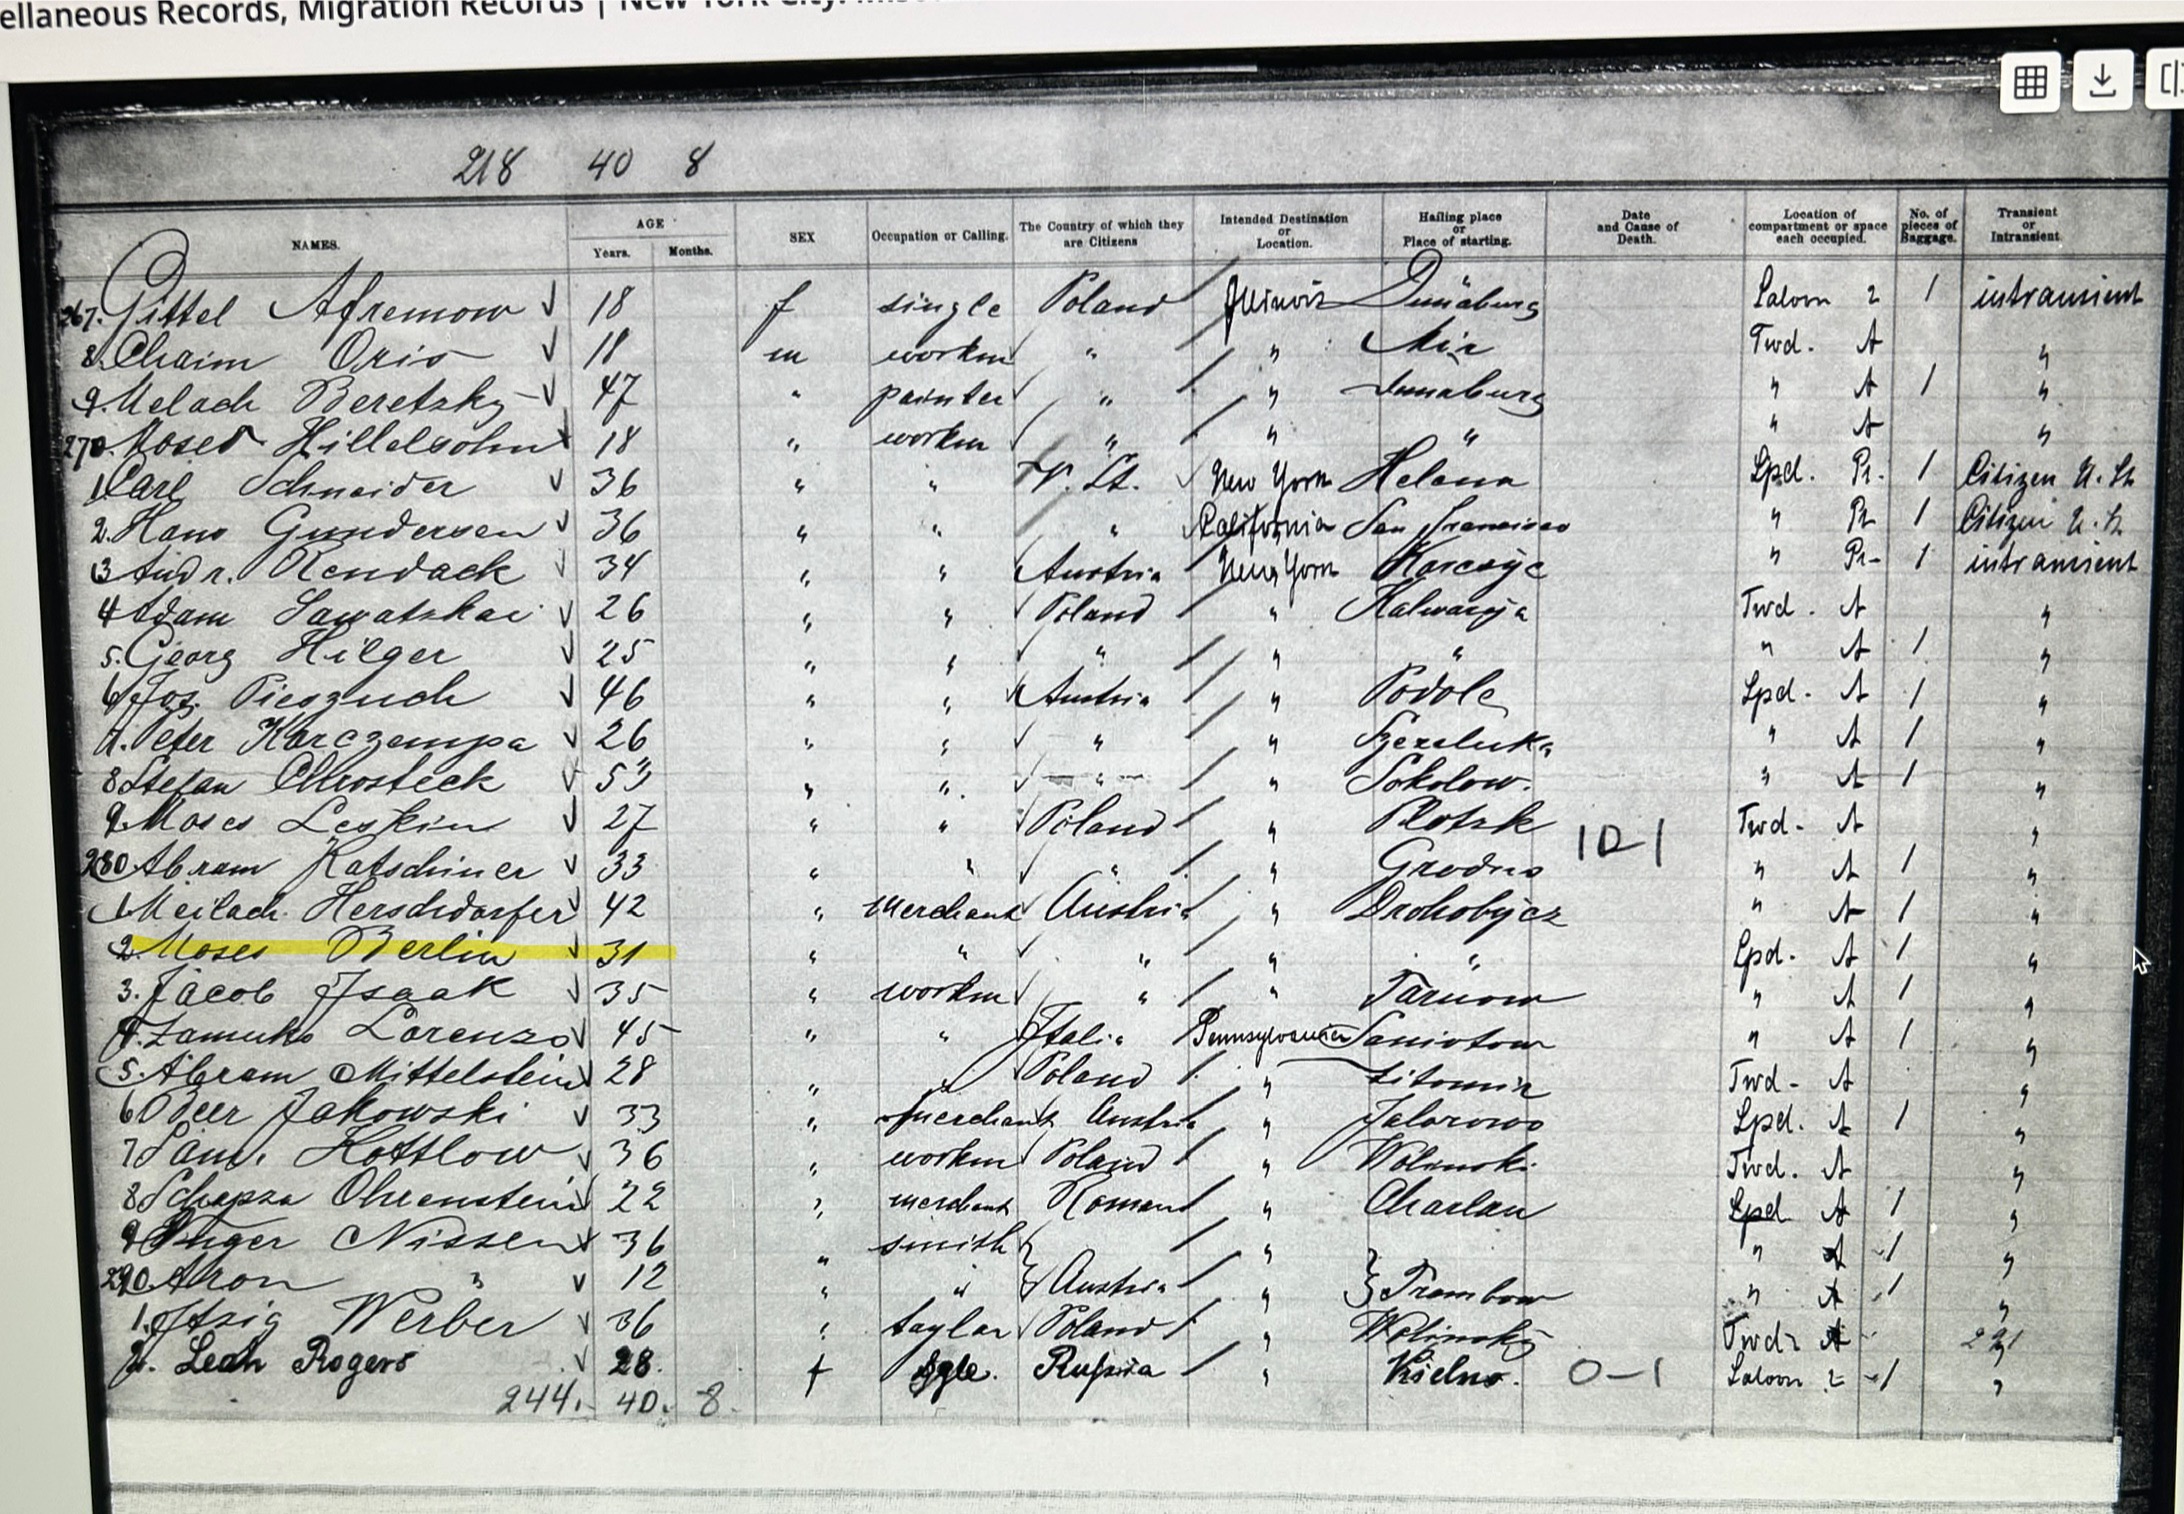 ellaneous Records, Migration Records | New York City.
218 40 8
NAMES. AGE Years. Months. SEX Occupation or Calling. The Country of which they are Citizens Intended Destination or Location. Hailing place or Place of starting. Date and Cause of Death. Location of compartment or space each occupied. No. of pieces of Baggage. Transient or Intransient.
267. Gittel Afremow √ 18 f single Poland / Illinois Dünaburg Saloon 2 1 intransient
8. Chaim Oris √ 18 m workm √ " / " Mir Twd. A "
9. Melach Beretzky √ 47 " painter √ " / " Dünaburg " A 1 "
270. Moses Hillelsohn √ 18 " workm √ " / " " " A "
1. Carl Schneider √ 36 " " V. St. √ New York Helena Spd. Pr. 1 Citizen U. St
2. Hans Gundersen √ 36 " " " California San Francisco " Pr 1 Citizen U. St
3 Andr. Rendack √ 34 " " Austria New York Korczyc " Pr- 1 intransient
4 Adam Sawatzkai √ 26 " " √ Poland / " Kalwarya Twd. A "
5. Georg Hilger √ 25 " " √ " / " " " A 1 "
6 Jos. Pieszuch √ 46 " " √ Austria / " Podole Spd. A 1 "
7. Peter Karczempa √ 26 " " √ " / " " A 1 "
8 Stefan Chrosteck √ 53 " " √ " / " Sokolow. " A 1 "
9. Moses Leskin √ 27 " " √ Poland / " Plotzk 10-1 Twd- A "
280 Abram Katschiner √ 33 " " √ " / " Grodno " A 1 "
1. Meilach Herschdorfer √ 42 " merchant √ Austria / " Drohobycz " A 1 "
2. Moses Berlin √ 31 " " √ " / " " Spd. A 1 "
3. Jacob Isaak √ 35 " workm √ " / " Tarnow " A 1 "
4. Lorenzo √ 45 " " Italia Pennsylvania " A 1 "
5. Abram Mittelstein √ 28 " " Poland / " Litomir Twd- A "
6 Beer Jakowski √ 33 " merchant Austria " Jaborowo Spd. A 1 "
7 Sam. Kottlow √ 36 " workm √ Poland / " Wolinski Twd. A "
8 Schapsa Ohrenstein √ 22 " merchant Roman / " Charlau Spd A 1 "
9 Nissen √ 36 " smith √ / " " A 1 "
290. Aron " √ 12 " " √ Austria / " Trembow " A 1 "
1. Itzig Werber √ 36 " taylor √ Poland / " Wolinsky Twd. A "
2. Leah Rogers √ 28 f sgle. Russia / " Kielno. 0-1 Saloon 2 1 "
244. 40. 8.